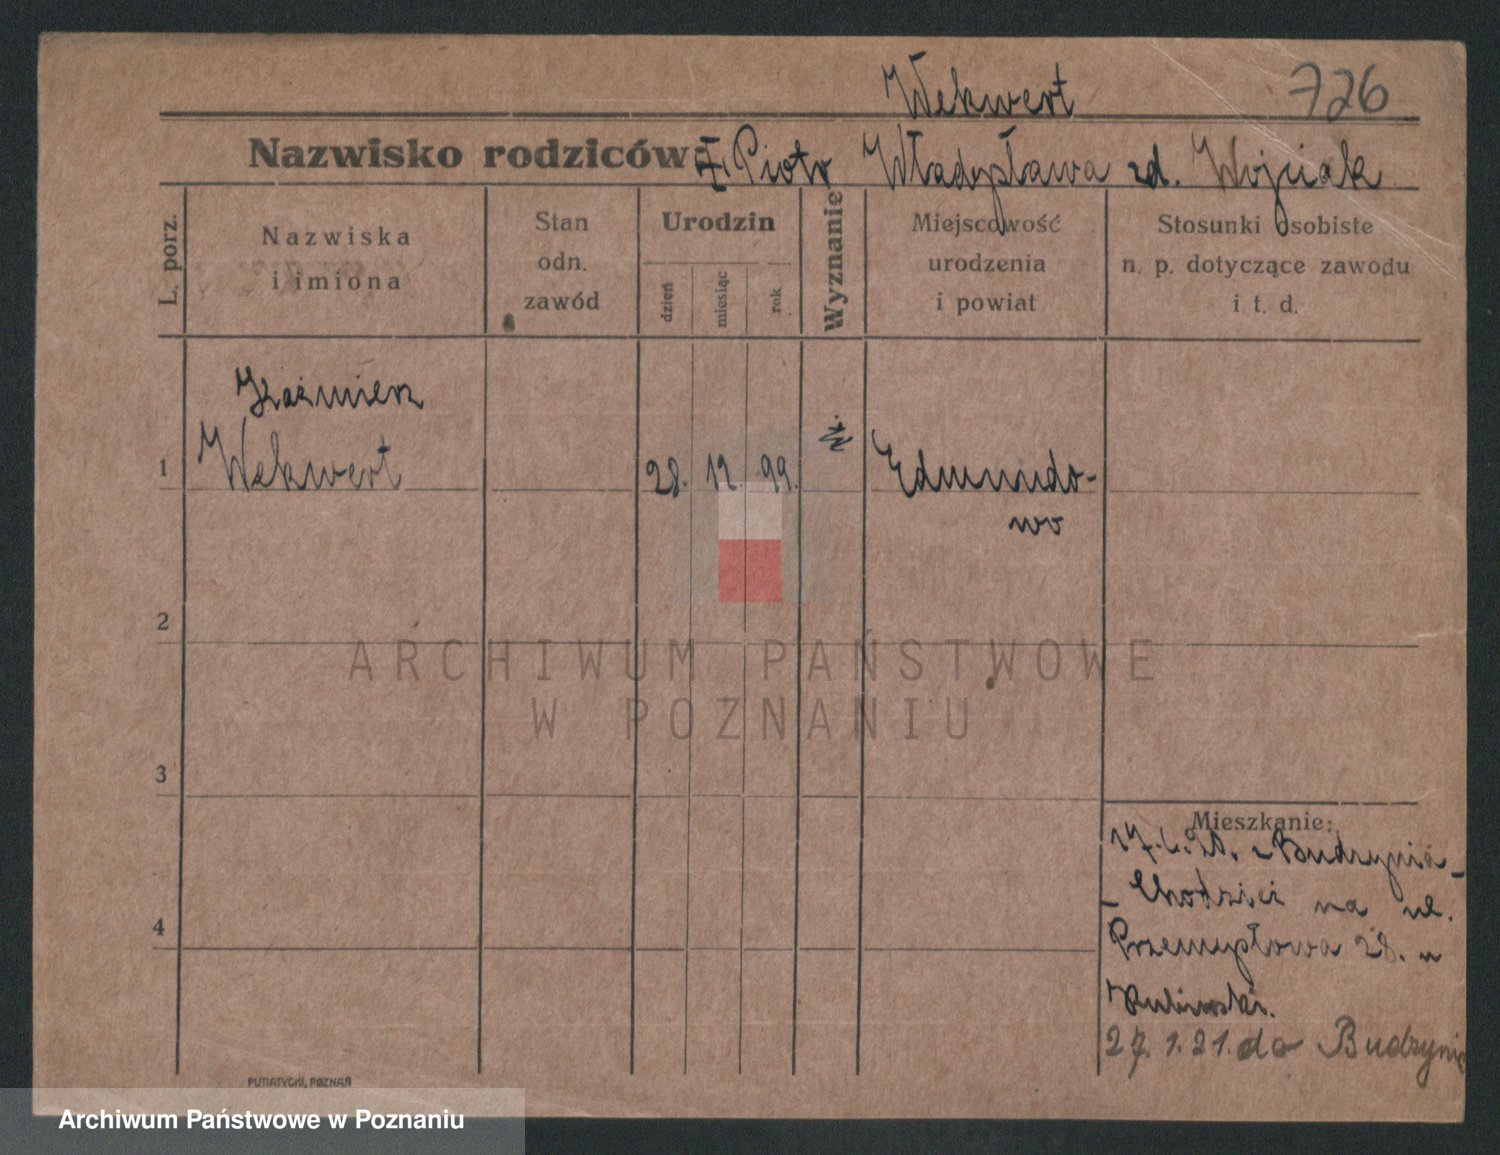 Wekwert 726
Nazwisko rodziców: Ż. Piotr Władysława zd. Wojciak
L. porz.
Nazwiska
i imiona
Stan
odn.
zawód
Urodzin
dzień
miesiąc
rok
Wyznanie
Miejscowość
urodzenia
i powiat
Stosunki osobiste
n. p. dotyczące zawodu
i t. d.
Kaźmierz
1 Wekwert 28. 12. 99. Edmundo-
wo
2
ARCHIWUM PAŃSTWOWE
W POZNANIU
3
Mieszkanie:
z Budzynia
- Chodzież na ul.
4 Przemysłowa 28. u
27. 1. 21. do Budzynia
PUTIATYCKI, POZNAŃ
Archiwum Państwowe w Poznaniu